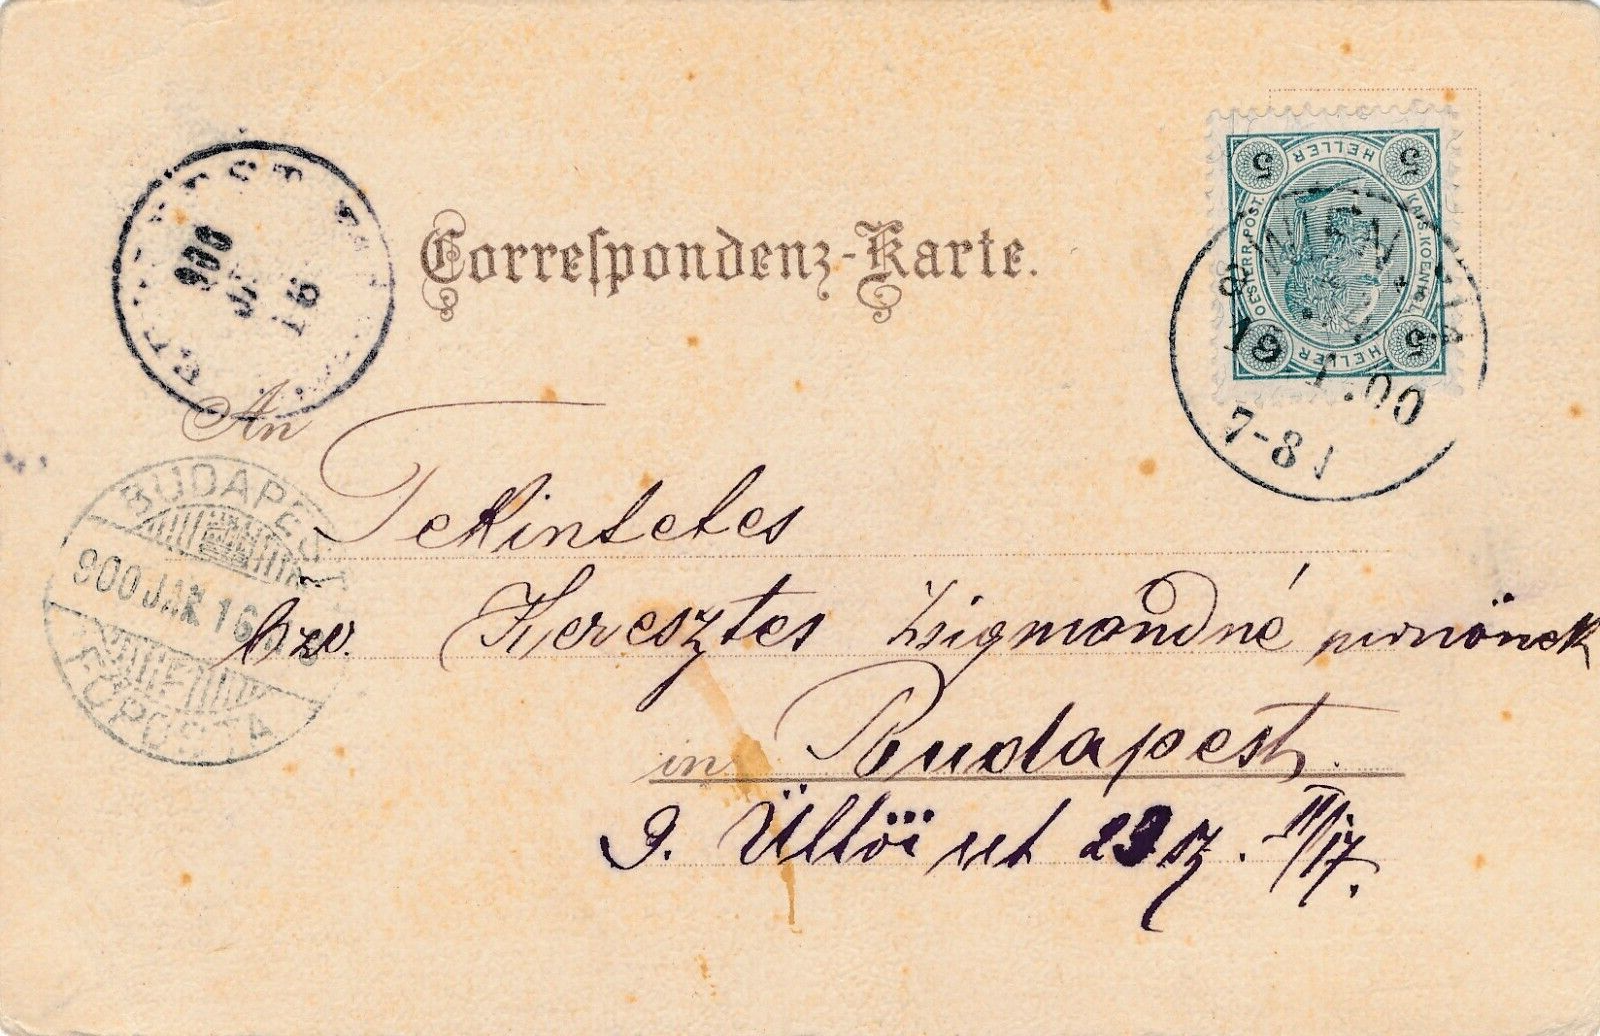 Correspondenz-Karte.
5 HELLER 5
OESTERR. POST. KAIS. KOENIGL.
5 HELLER 5
WIEN
16 1.00
7-8
900
JAN
16
An
BUDAPEST
900 JAN 16
FŐPOSTA
Tekintetes
özv. Keresztes Zsigmondné urnőnek
in Budapest.
9. Üllői ut 23 sz. II/17.